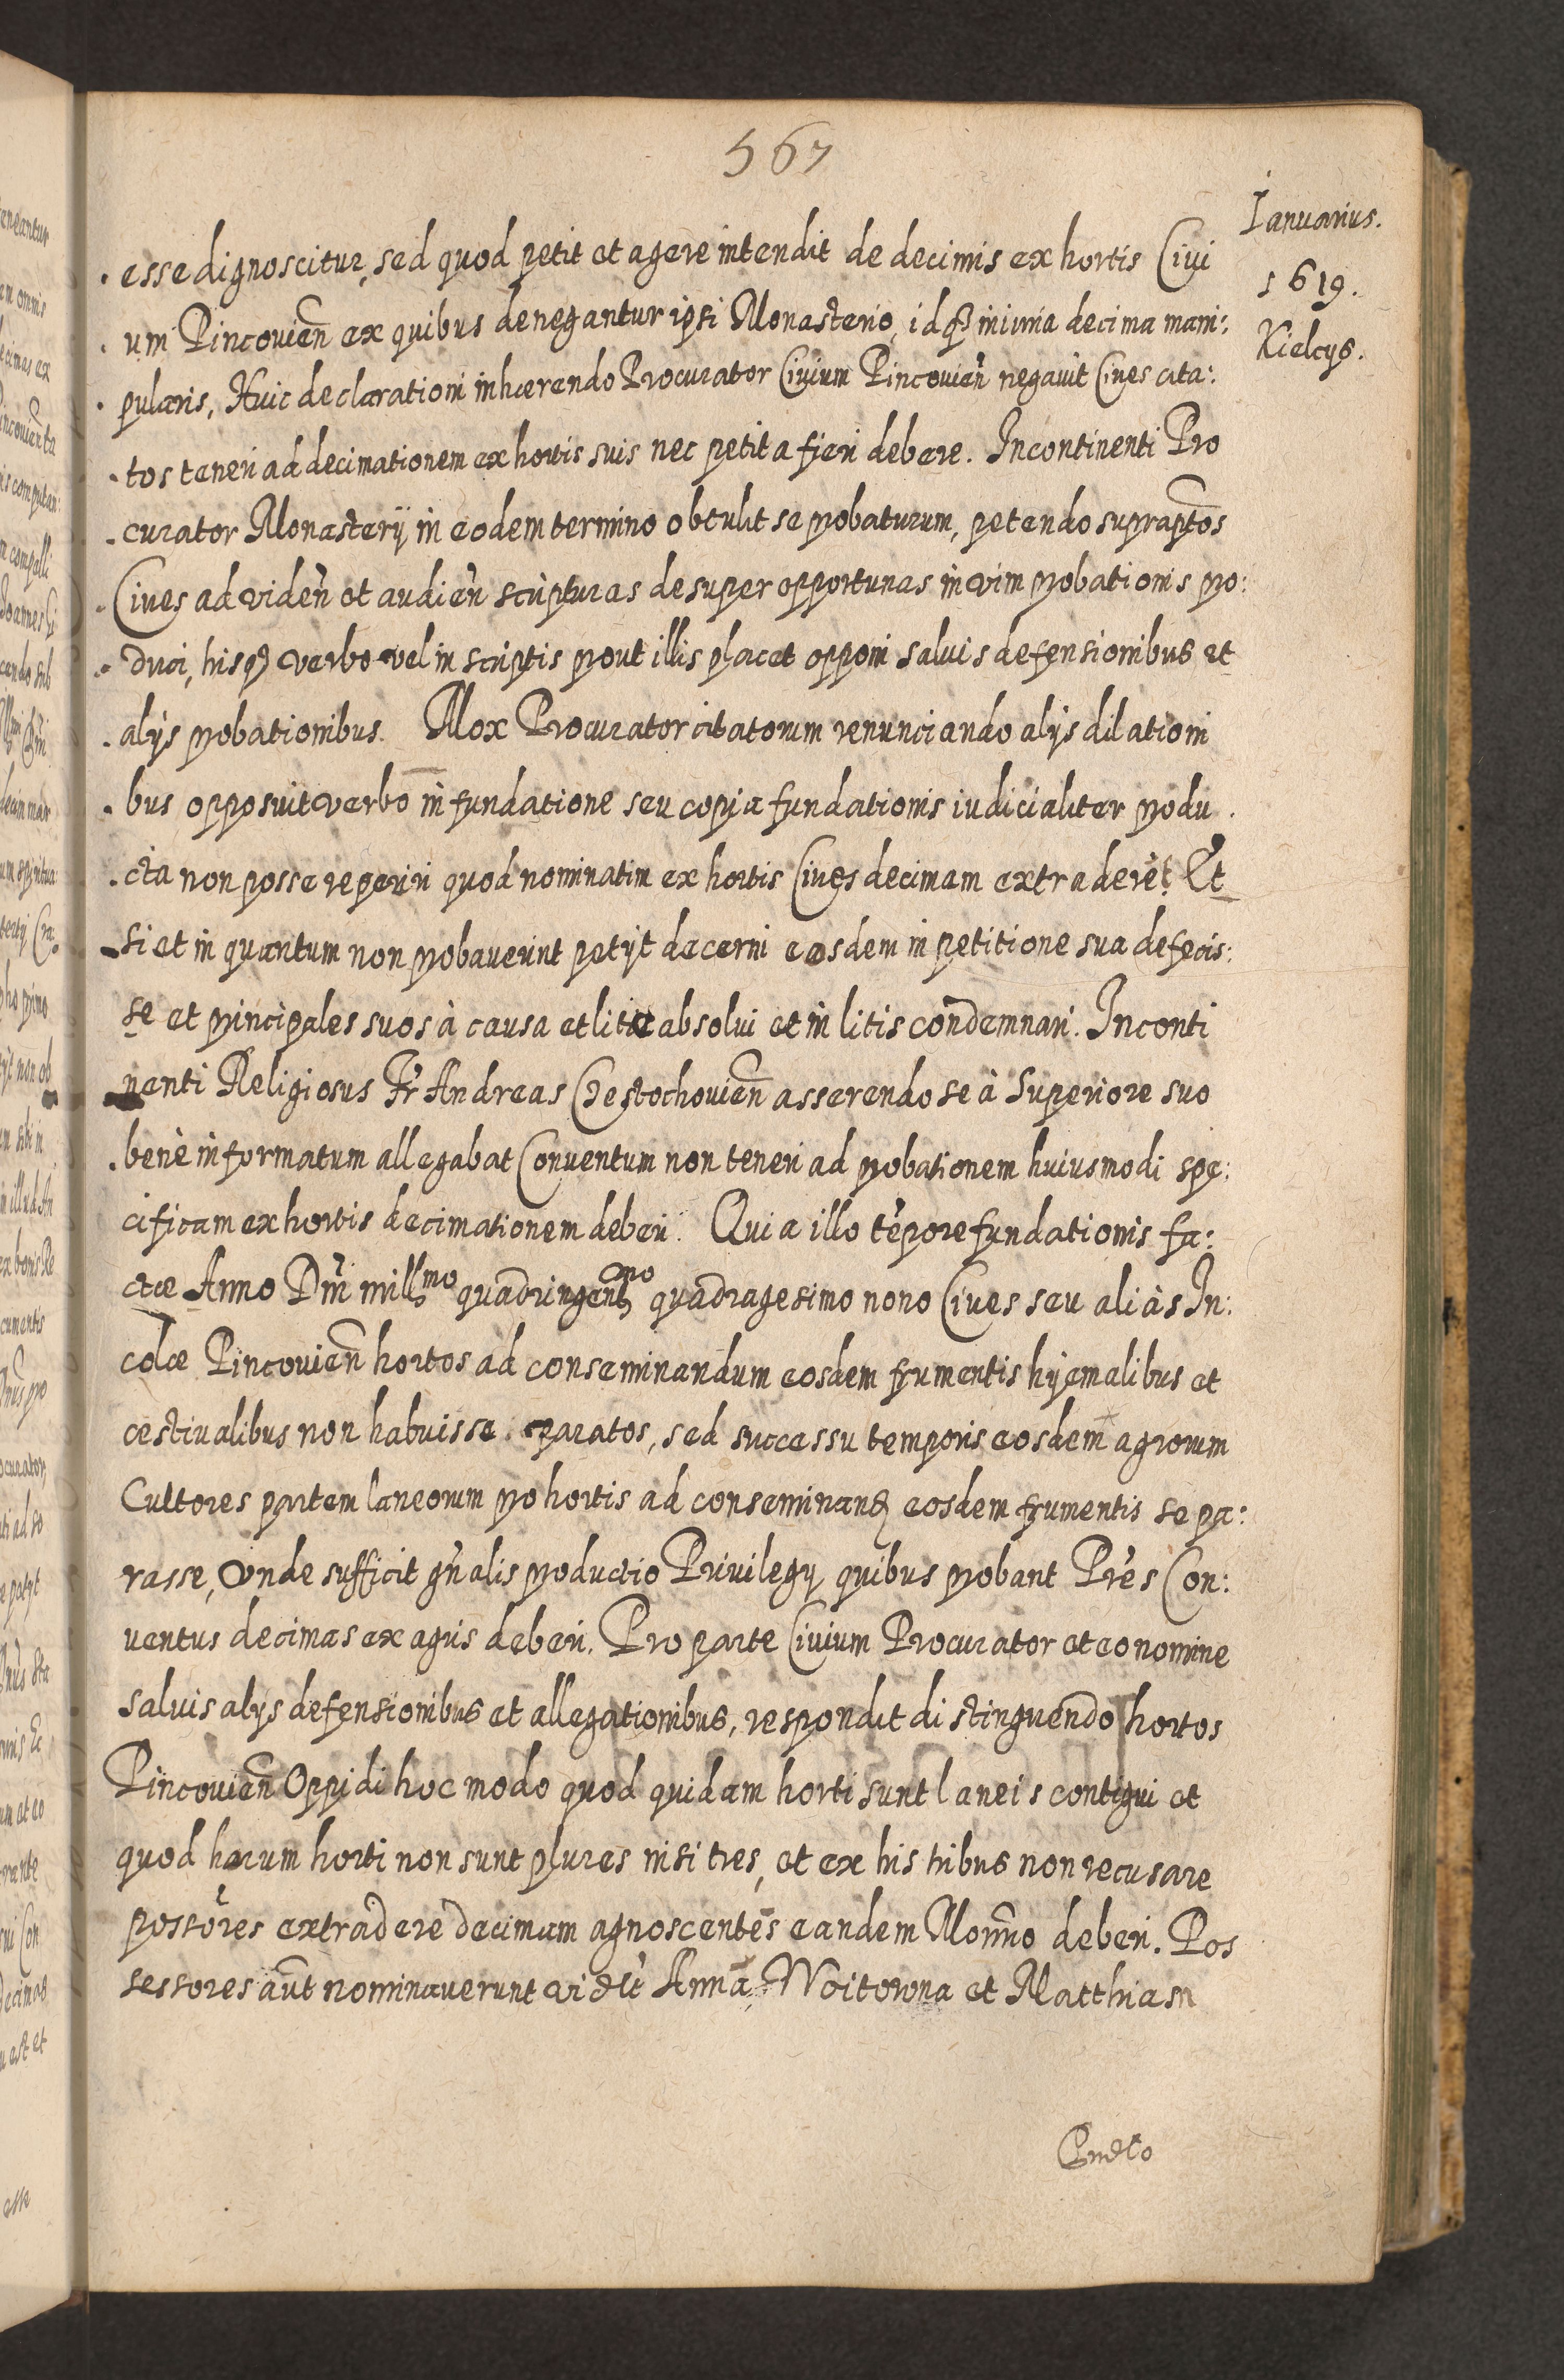 567
Ianuarius.
1619.
Kielcys.
esse dignoscitur, sed quod petit et agere intendit de decimis ex hortis Ciui
um Pincouien̄ ex quibus denegantur ipsi Monasterio, idq₃ minima decima mani:
pularis, Huic declarationi inhærendo Procurator Ciuium Pincouien̄ negauit Ciues cita:
tos teneri ad decimationem ex hortis suis nec petita fieri debere. Incontinenti Pro
curator Monasterÿ in eodem termino obtulit se probaturum, petendo suprapt̄os
Ciues ad viden̄ et audien̄ scripturas desuper opportunas in vim probationis pro:
duci, hisq₃ verbo vel in scriptis prout illis placet opponi saluis defensionibus et
alÿs probationibus. Mox Procurator citatorum renunciando alÿs dilationi
bus opposuit verbo in fundatione seu copia fundationis iudicialiter produ
cta non posse reperiri quod nominatim ex hortis Ciues decimam extraderēt. Et
si et in quantum non probauerint petÿt decerni eosdem in petitione sua defecis:
se et principales suos à causa et lite absolui et in litis condemnari. Inconti
nenti Religiosus Fr̄ Andreas Czestochouien̄ asserendo se à Superiore suo
benè informatum allegabat Conuentum non teneri ad probationem huiusmodi spe:
cificam ex hortis decimationem deberi. Quia illo tēpore fundationis fa:
ctæ Anno Dn̄i mill^mo quadringent^mo quadragesimo nono Ciues seu aliàs In:
colæ Pincouien̄ hortos ad conseminandum eosdem frumentis hÿemalibus et
æstiualibus non habuisse paratos, sed successu temporis eosdem agrorum
Cultores partem laneorum pro hortis ad conseminand₃ eosdem frumentis se pa:
rasse, Vnde sufficit gn̄alis productio Priuilegÿ quibus probant Pr̄es Con:
uentus decimas ex agris deberi. Pro parte Ciuium Procurator et eo nomine
saluis alÿs defensionibus et allegationibus, respondit distinguendo hortos
Pincouien̄ Oppidi hoc modo quod quidam horti sunt laneis contigui et
quod harum horti non sunt plures nisi tres, et ex his tribus non recusare
possōres extradere decimam agnoscentes eandem Monr̄io deberi. Pos
sessores aūt nominauerunt vidt̄ Annā Woitowna et Matthiam